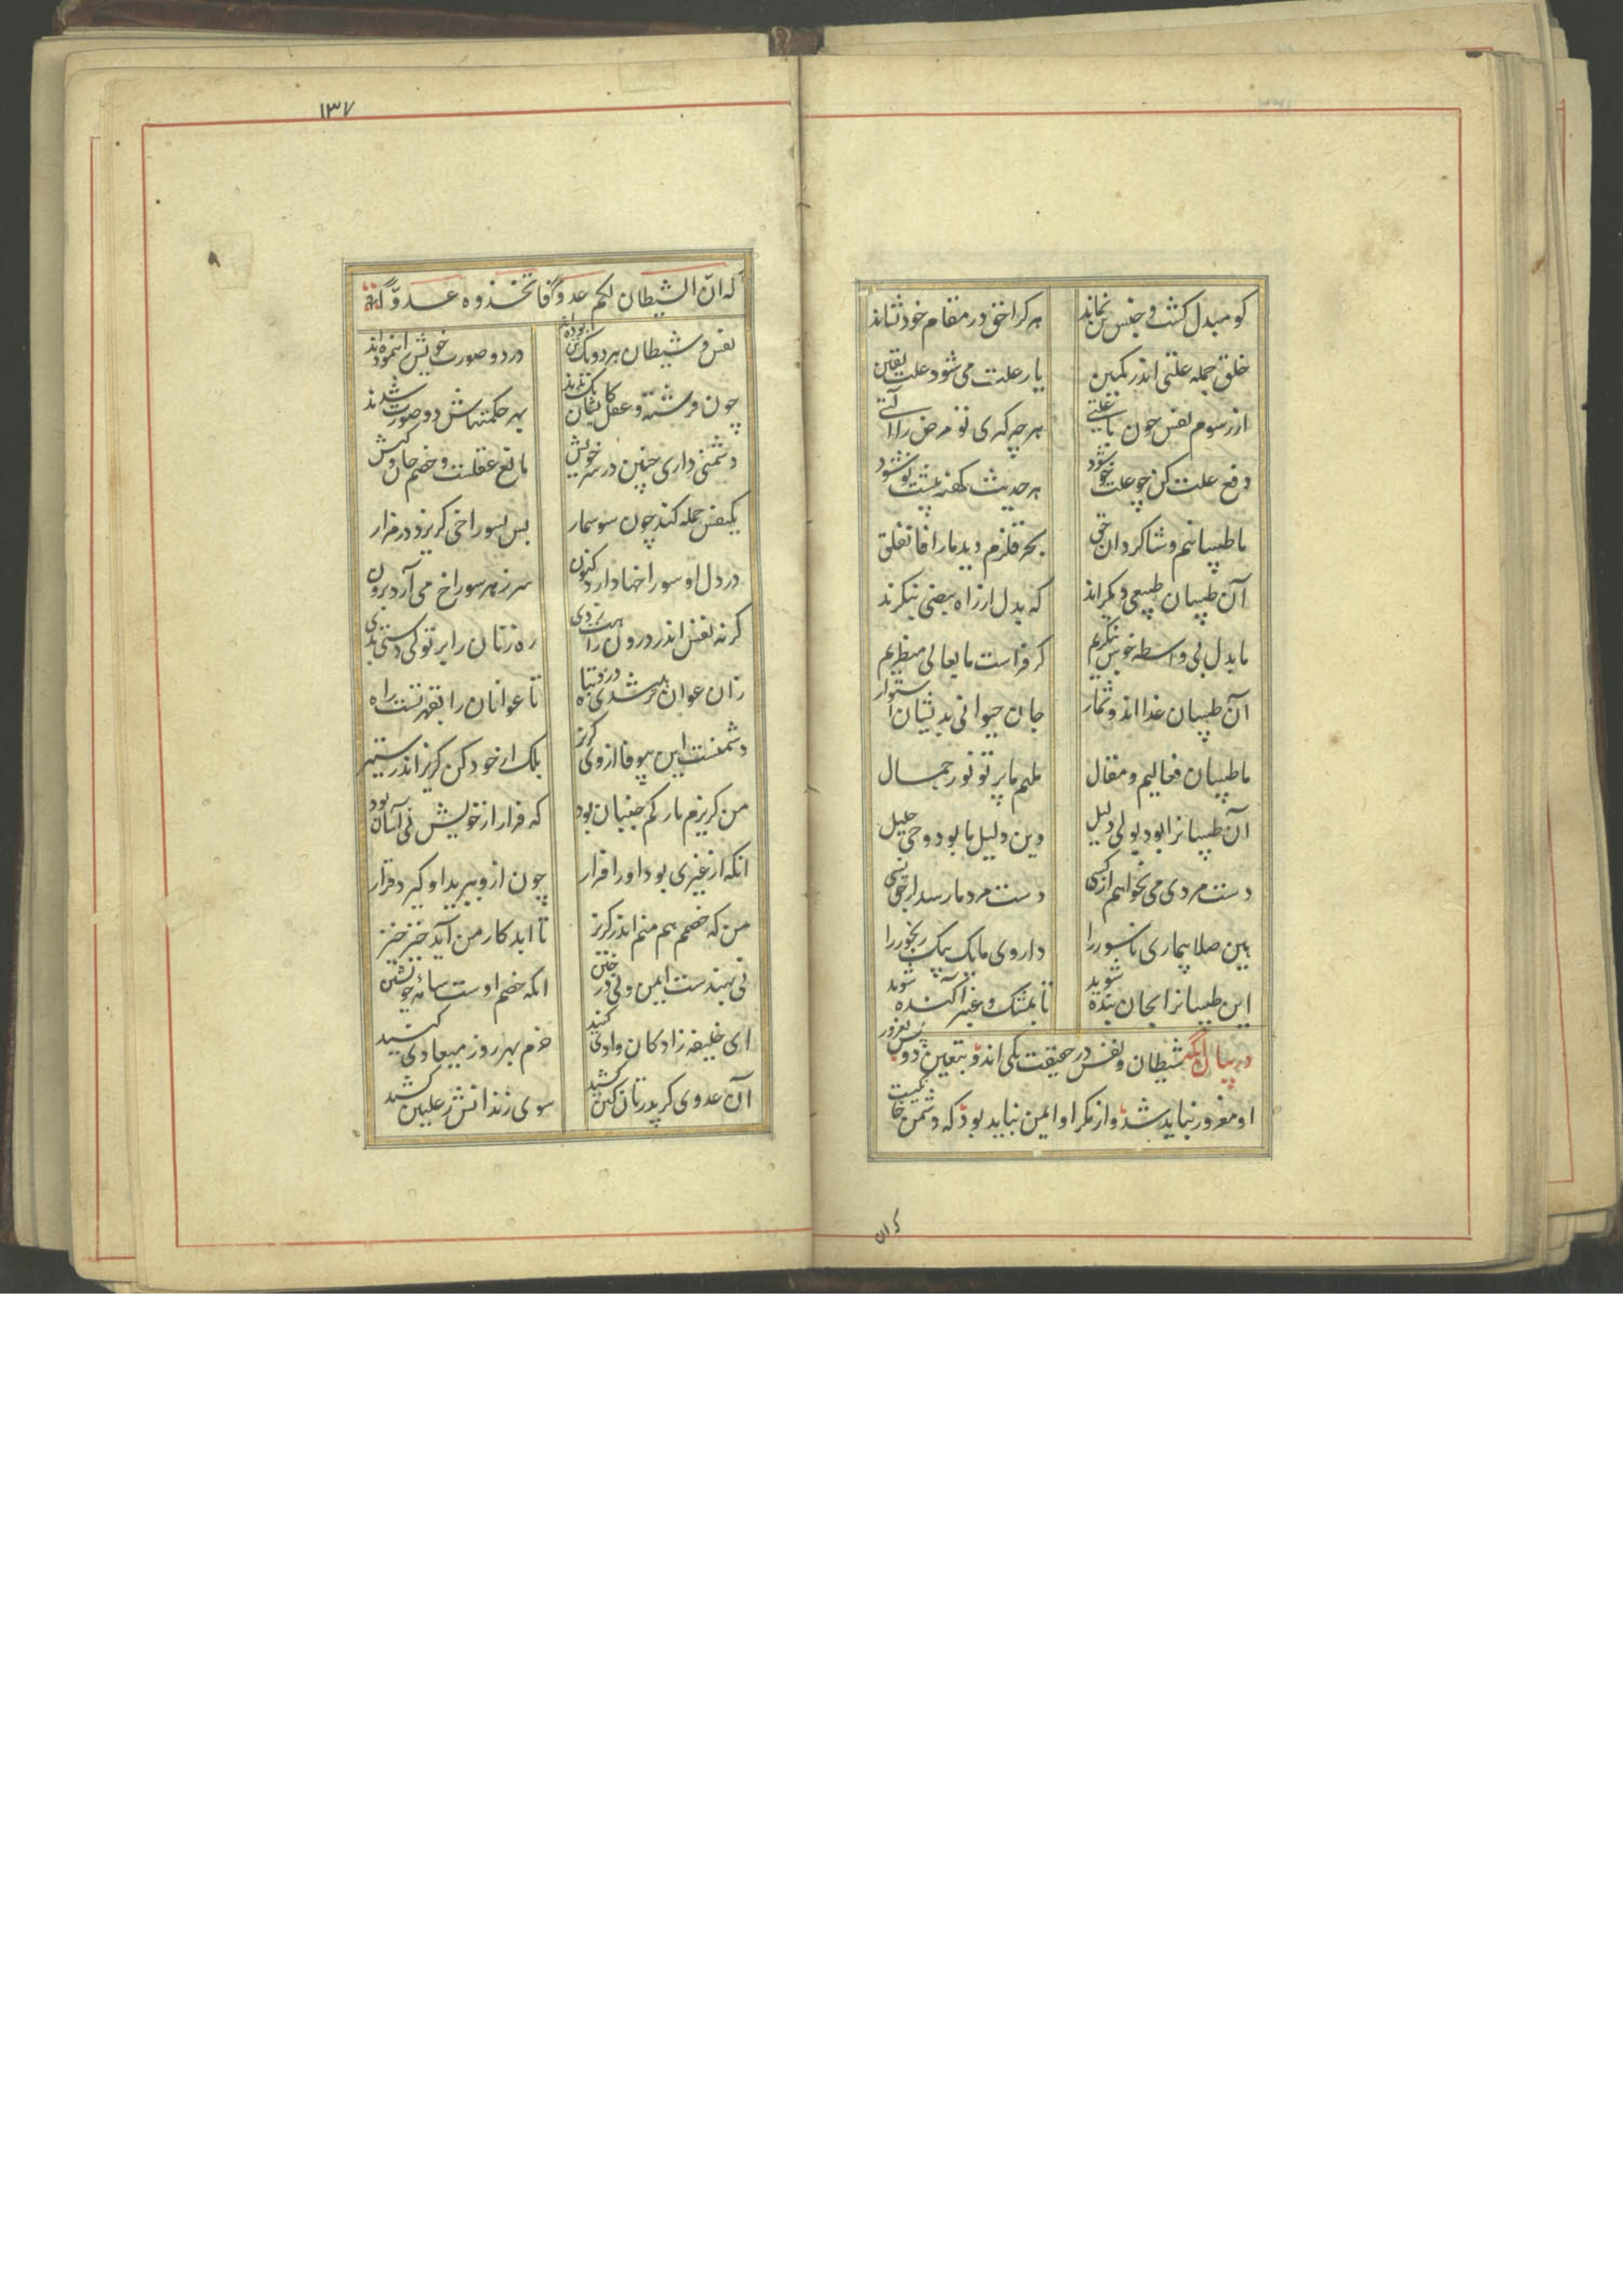 کو مبدل کشت و جنس تن نماند هرکرا حق در مقام خود نشاند
خلق جمله علتی اندر کمین یار علت می شود علت یقین
از رسوم نفس چون با علتی هر چه گیری تو مرض را آلتی
دفع علت کن چو علت خو شود هر حدیث کهنه پیشت نو شود
ما طبیبانیم و شاکردان حق بحر قلزم دید ما را فانفلق
آن طبیبان طبیعی دیکراند که بدل از راه نبضی بنکرند
ما بدل بی واسطه خوش بنکریم کز فراست ما بعالی منظریم
آن طبیبان غذااند و ثمار جان حیوانی بدیشان استوار
ما طبیبان فعالیم و مقال ملهم ما پرتو نور جمال
آن طبیبانرا بود بولی دلیل وین دلیل ما بود وحی جلیل
دست مردی می نخواهیم از کسی دست مرد ما رسد از حق بسی
هین صلا بیماری ناسور را داروی ما یک بیک رنجور را
این طبیبانرا بجان بنده شوید تا بمشک و عنبر آکنده شوید
در بیان انکه شیطان و نفس در حقیقت یکی اند و بتعین دو پس بغرور
او مغرور نباید شد و از مکر او ایمن نباید بود که دشمن خا نکیست
کران
۱۳۷
که انّ الشیطان لکم عدوّ فاتخذوه عدوّا
نفس و شیطان هر دو یک تن بوده اند در دو صورت خویش را بنموده اند
چون فرشته و عقل کایشان یک بدند بهر حکمتهاش دو صورت شدند
دشمنی داری چنین در سر خویش مانع عقلست و خصم جان و کیش
یکنفس حمله کند چون سوسمار پس بسوراخی کریزد در فرار
در دل او سوراخها دارد کنون سر ز هر سوراخ می آرد برون
کرنه نفس اندر درون راهت زدی ره زنان را بر تو کی دستی بدی
زان عوان سر شدی دزد و تباه تا عوانان را بقهر تست راه
دشمنست این بیوفا از وی کریز بلک از خود کن کریز اندر ستیز
من کریزم تا رکم جنبان بود که فرار از خویش نی آسان بود
انکه از غیری بود او را فرار چون ازو ببرید او کیرد قرار
من که خصمم هم منم اندر کریز تا ابد کار من آید خیز خیز
نی بهندست ایمن و نی در ختن انکه خصم اوست سایه خویشتن
ای خلیفه زادکان دادی کنید حزم بهر روز میعادی کنید
آن عدوی کز پدرتان کین کشید سوی زندانش ز علیین کشید